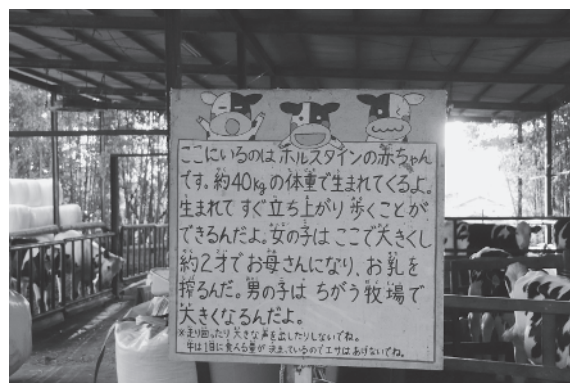 ここにいるのは ホルスタインの赤ちゃん
です。約40kgの体重で生まれてくるよ。
生まれて すぐ立ち上がり 歩くことが
できるんだよ。女の子は ここで大きくし
約2才でお母さんになり、お乳を
搾るんだ。男の子は ちがう牧場で
大きくなるんだよ。
※走り回ったり大きな声を出したりしないでね。
牛は1日に食べる量が決まっているのでエサはあげないでね。